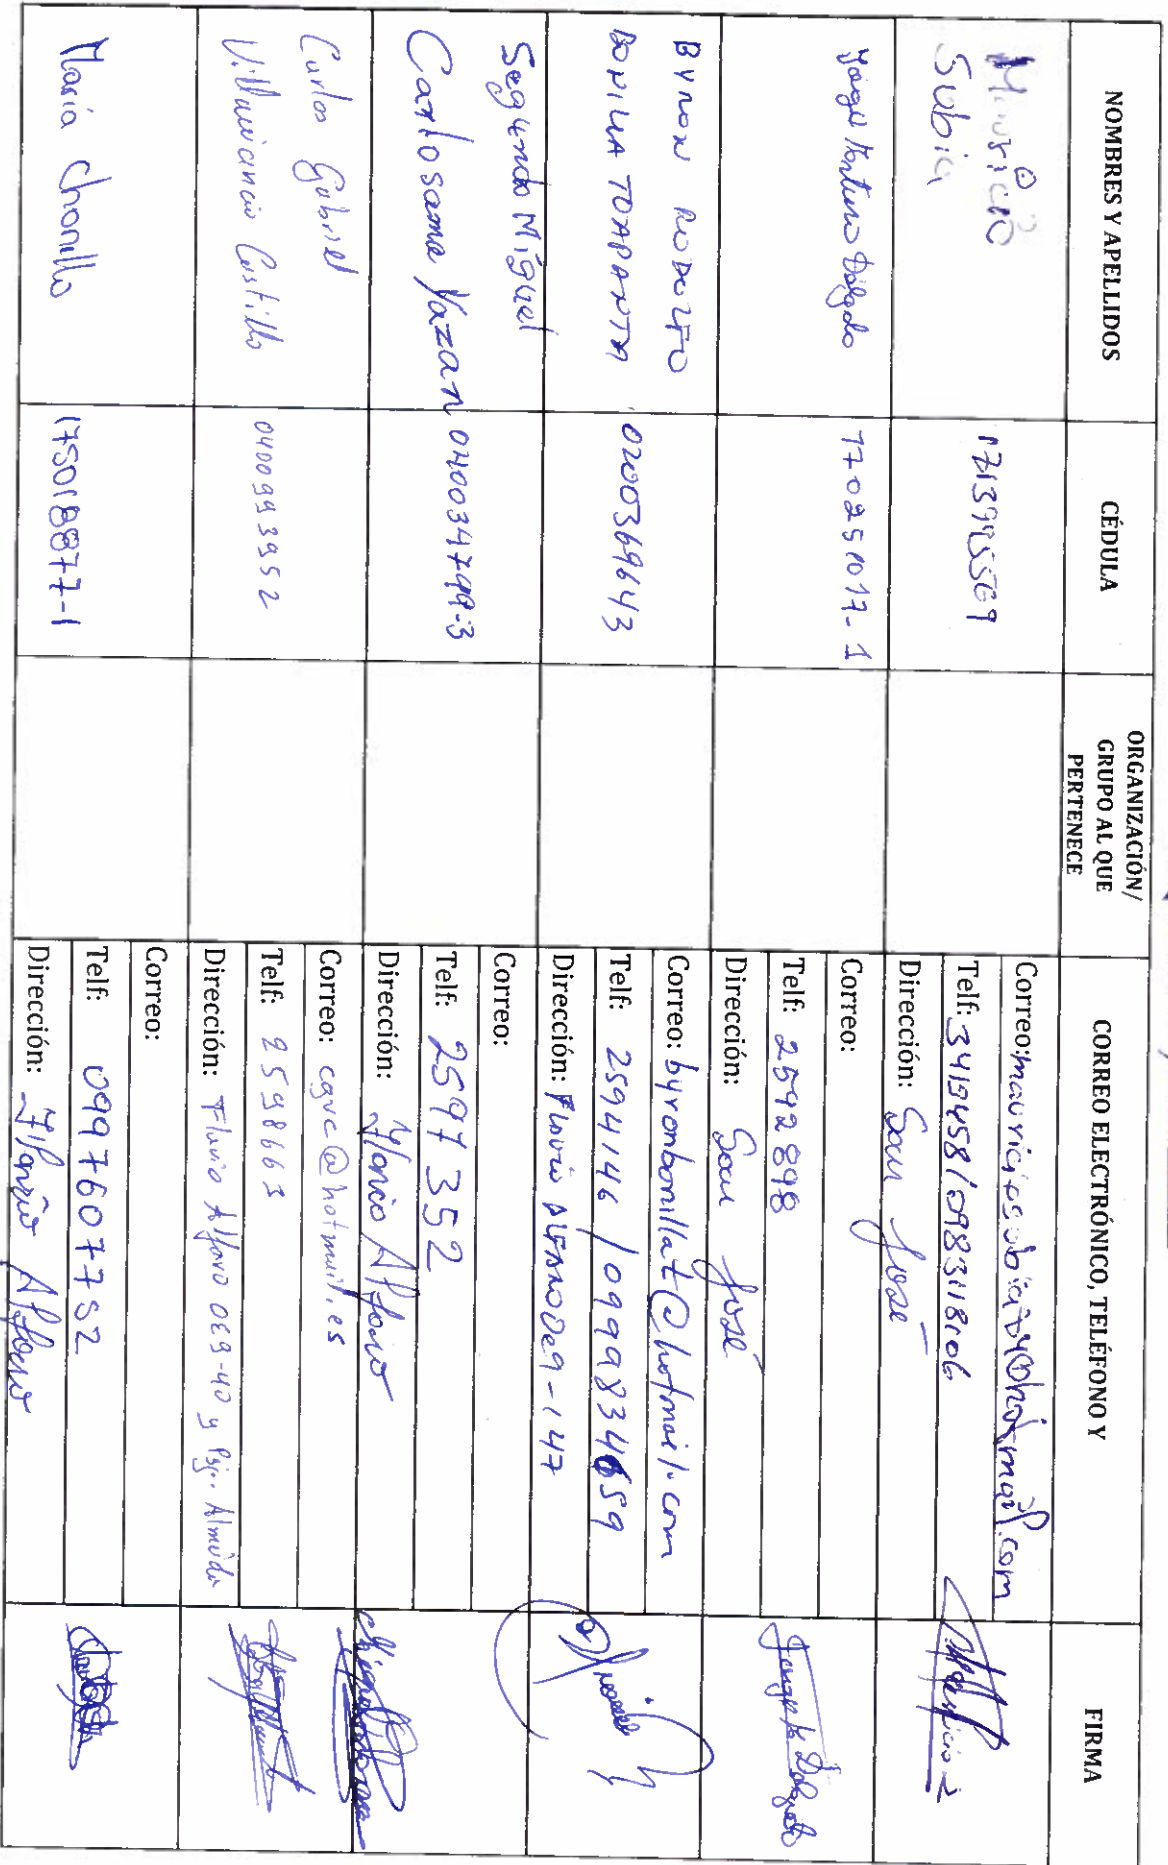 NOMBRES Y APELLIDOS
CÉDULA
ORGANIZACIÓN/
GRUPO AL QUE
PERTENECE
CORREO ELECTRÓNICO, TELÉFONO Y
FIRMA
Mauricio
Subia
Correo:
Telf: 3419458/0983118106
Dirección: San José
Jorge Delgado
170251017-1
Correo:
Telf: 2592898
Dirección: San José
BYRON RODOLFO
BONILLA TOAPANTA
0200369643
Correo: byronbonillat@hotmail.com
Telf: 2594146 / 0999834659
Dirección: Flavio ALFARO Oe9-147
Segundo Miguel
Carlosama Yazan
Correo:
Telf: 2597352
Dirección: Alfaro
Carlos Gabriel
Villavicencio Castillo
0400993952
Correo: cgvc@hotmail.es
Telf: 2598663
Dirección: Flavio Alfaro OE9-40 y Psje. Almeida
María Chanillo
175018877-1
Correo:
Telf: 0997607752
Dirección: Alfaro